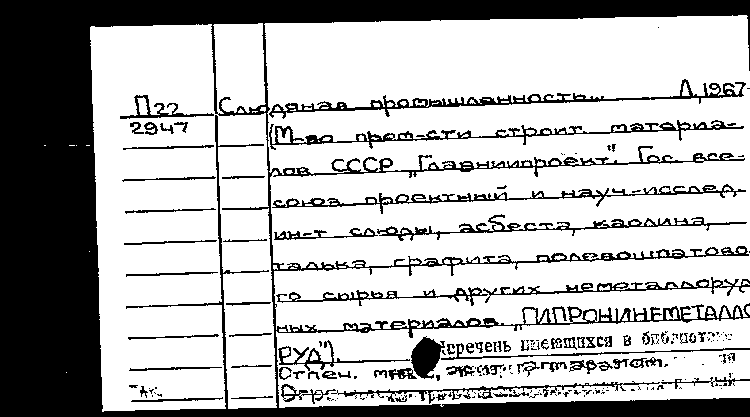 П22 Слюдяная промышленность... Л, 1967-
2947 (М-во пром-сти строит. материа-
лов СССР „Главниипроект". Гос. все-
союз проектный и науч.-исслед.
ин-т слюды, асбеста, каолина,
талька, графита, полевошпатово
го сырья и других неметаллоруд
ных материалов „ГИПРОНИНЕМЕТАЛЛО
РУД").
Перечень имеющихся в библиотеке
Отпеч. множ. аппаратом.